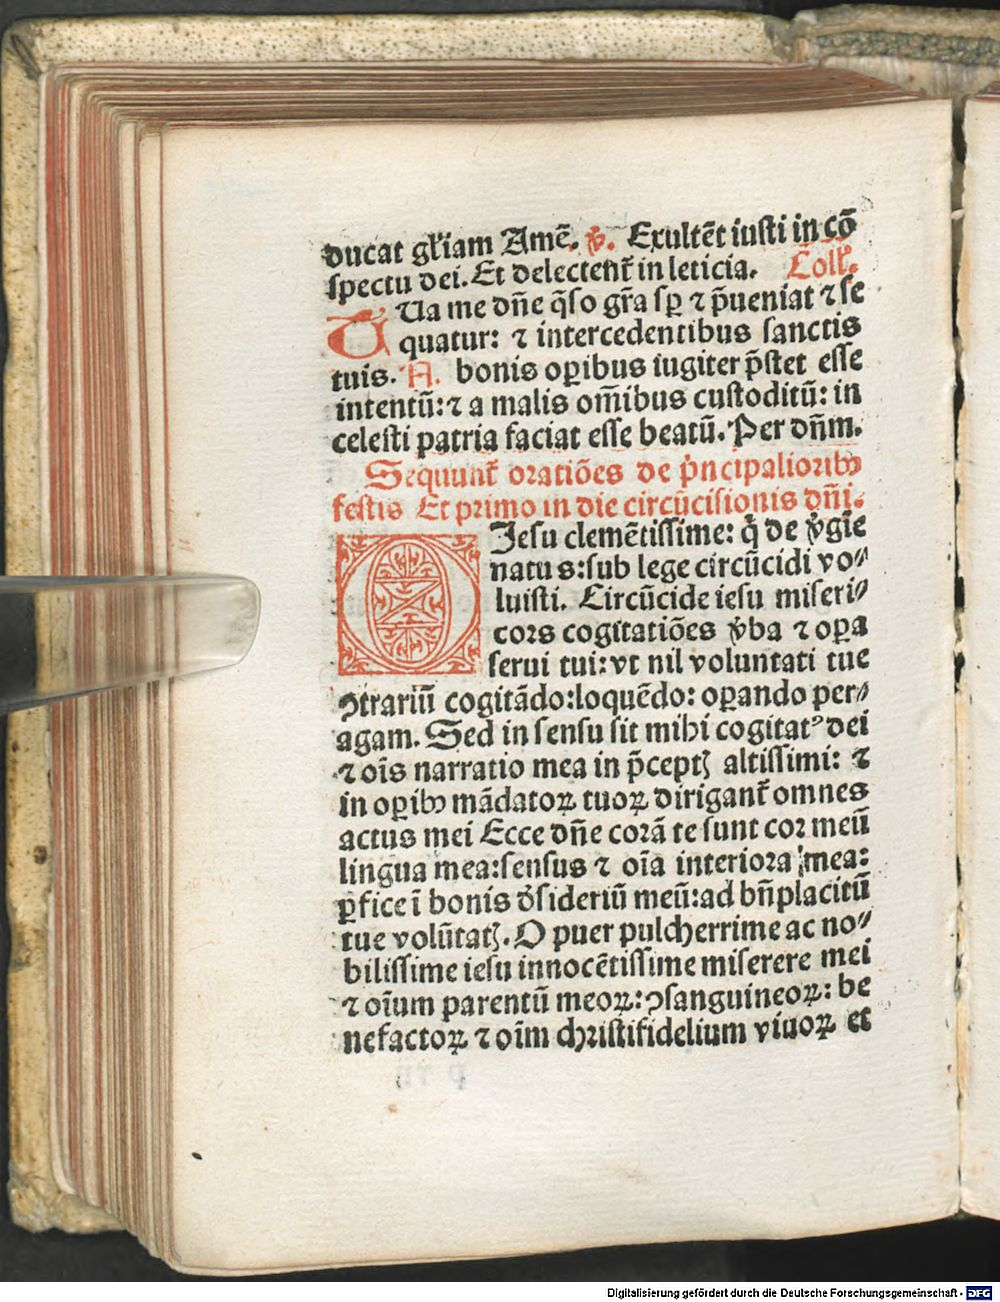 ducat gl'iam Amē. ꝟ. Exultēt iusti in cō
spectu dei. Et delectent᷑ in leticia. Coll'.
TUa me dn̄e q̄so gr̄a sꝑ ⁊ p̄ueniat ⁊ se
quatur: ⁊ intercedentibus sanctis
tuis. A. bonis oꝑibus iugiter p̄stet esse
intentū: ⁊ a malis om̄ibus custoditū: in
celesti patria faciat esse beatū. Per dn̄m.
Sequunt᷑ oratiōes de pͥncipalioribꝰ
festis Et primo in die circūcisionis dn̄i.
O Jesu clemētissime: qͥ de ꝟgīe
natus: sub lege circūcidi vo⸗
luisti. Circūcide iesu miseri⸗
cors cogitatiōes ꝟba ⁊ oꝑa
serui tui: vt nil voluntati tue
ꝯtrariū cogitādo: loquēdo: oꝑando per⸗
agam. Sed in sensu sit mihi cogitatꝰ dei
⁊ oīs narratio mea in p̄ceptꝭ altissimi: ⁊
in oꝑibꝰ mādatoꝝ tuoꝝ dirigant᷑ omnes
actus mei Ecce dn̄e corā te sunt cor meū
lingua mea: sensus ⁊ oīa interiora mea:
ꝑfice ī bonis d̕sideriū meū: ad bn̄placitū
tue volūtatꝭ. O puer pulcherrime ac no⸗
bilissime iesu innocētissime miserere mei
⁊ oīum parentū meoꝝ: ꝯsanguineoꝝ: be
nefactoꝝ ⁊ oīm christifidelium viuoꝝ et
Digitalisierung gefördert durch die Deutsche Forschungsgemeinschaft - DFG